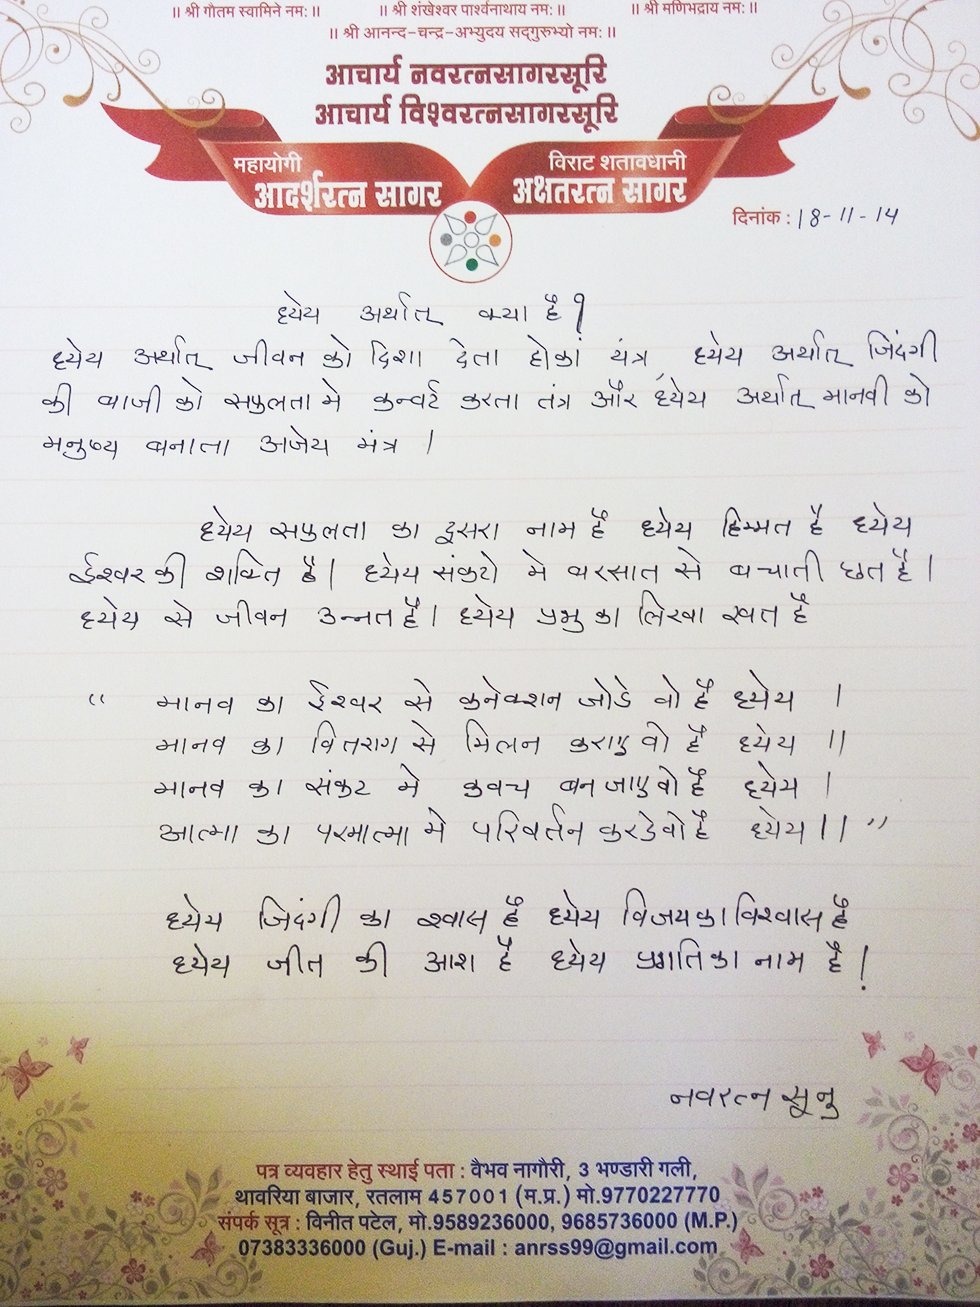 ॥ श्री गौतम स्वामिने नमः ॥ ॥ श्री शंखेश्वर पार्श्वनाथाय नमः ॥ ॥ श्री मणिभद्राय नमः ॥
॥ श्री आनन्द-चन्द्र-अभ्युदय सद्गुरुभ्यो नमः ॥
आचार्य नवरत्नसागरसूरि
आचार्य विश्वरत्नसागरसूरि
महायोगी
आदर्शरत्न सागर
विराट शतावधानी
अक्षतरत्न सागर
दिनांक : 18-11-14
ध्येय अर्थात् क्या है ?
ध्येय अर्थात् जीवन को दिशा देता होकां यंत्र, ध्येय अर्थात् जिंदगी
की बाजी को सफुलता मे कन्वर्ट करता तंत्र और ध्येय अर्थात् मानवी को
मनुष्य बनाता अजेय मंत्र ।
ध्येय सफुलता का दुसरा नाम है ध्येय हिम्मत है ध्येय
ईश्वर की शक्ति है । ध्येय संकटो मे बरसात से बचाती छत है ।
ध्येय से जीवन उन्नत है । ध्येय प्रभु का लिखा खत है
“ मानव का ईश्वर से कनेक्शन जोडे वो है ध्येय ।
मानव का वितराग से मिलन कराए वो है ध्येय ॥
मानव का संकट मे कवच बन जाए वो है ध्येय ।
आत्मा का परमात्मा मे परिवर्तन करडे वो है ध्येय ॥ ”
ध्येय जिदंगी का श्वास है ध्येय विजय का विश्वास है
ध्येय जीत की आश है ध्येय प्रगति का नाम है !
नवरत्न सूनु
पत्र व्यवहार हेतु स्थाई पता : वैभव नागौरी, 3 भण्डारी गली,
थावरिया बाजार, रतलाम 457001 (म.प्र.) मो.9770227770
संपर्क सूत्र : विनीत पटेल, मो.9589236000, 9685736000 (M.P.)
07383336000 (Guj.) E-mail : anrss99@gmail.com